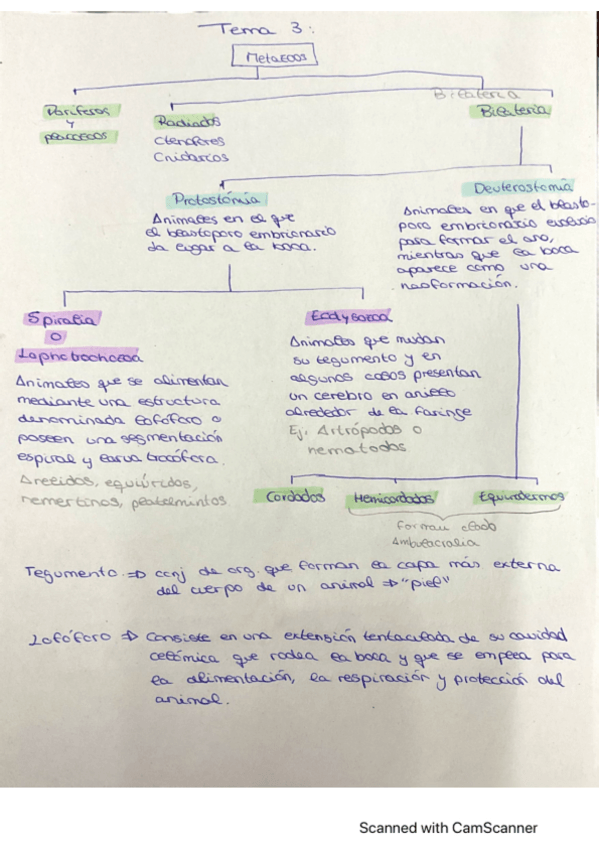 Tema 3:
Metazoos
Bilateria
Poríferos
y
placozoos
Radiados
Ctenóferos
Cnidarios
Bilateria
Protostómia
Animales en el que
el blastoporo embrionario
da lugar a la boca.
Deuterostomia
Animales en que el blasto-
poro embrionario
para formar el ano,
mientras que la boca
aparece como una
neoformación.
Spiralia
o
Lophotrochozoa
Animales que se alimentan
mediante una estructura
denominada lofóforo o
poseen una segmentación
espiral y larva trocófora.
Anélidos, equiúridos,
nemertinos, platelmintos.
Ecdysozoa
Animales que mudan
su tegumento y en
algunos casos presentan
un cerebro en anillo
alrededor de la faringe
Ej. Artrópodos o
nematodos
Cordados
Hemicordados
Equinodermos
Forman clado
Ambulacralia
Tegumento => conj de org. que forman la capa más externa
del cuerpo de un animal => "piel"
Lofóforo => Consiste en una extensión tentaculada de su cavidad
celómica que rodea la boca y que se emplea para
la alimentación, la respiración y protección del
animal.
Scanned with CamScanner